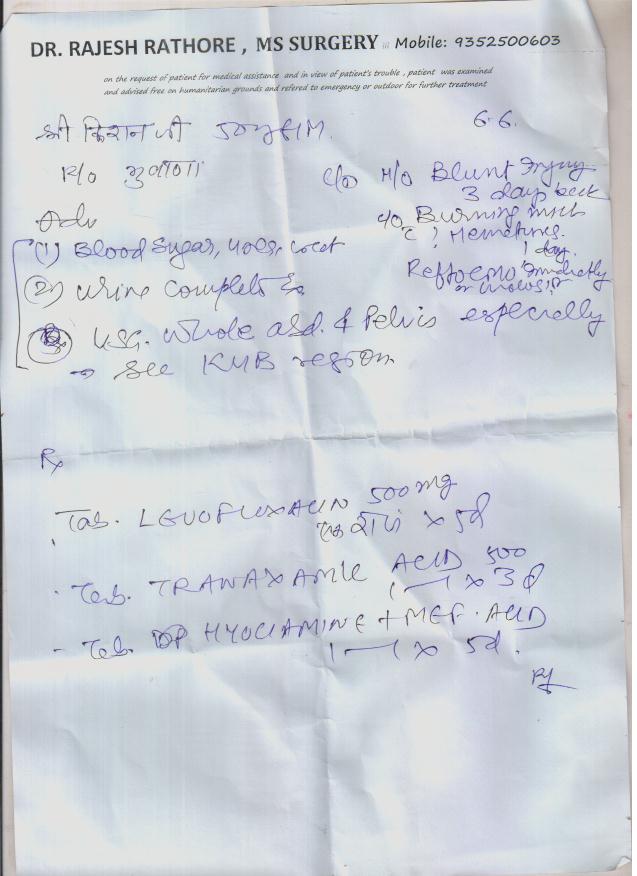 DR. RAJESH RATHORE , MS SURGERY Mobile: 9352500603
on the request of patient for medical assistance and in view of patient's trouble , patient was examined
and advised free on humanitarian grounds and refered to emergency or outdoor for further treatment
6.6.
श्री किशन जी 50y/M.
R/o
c/o H/o Blunt Injury
3 days back
c/o Burning mict
c ? Hematuria.
1 day.
Adv
(1) Blood Sugar, urea, creat
(2) Urine complete Ex
(3) U.S.G. Whole abd. & Pelvis especially
→ see KUB region
Rx
Tab. LEVOFLOXACIN 500mg
x 5d
Tab. TRANAXAMIC ACID 500
1—1 x 3d
Tab. HYOCIAMINE + MEF. ACID
1—1 x 5d.